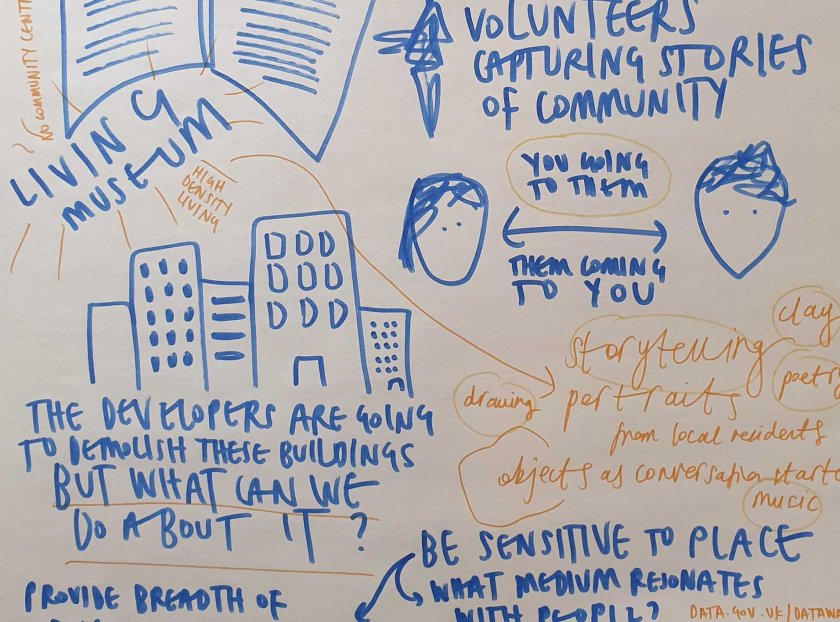 NO COMMUNITY CENT
LIVING
MUSEUM
HIGH
DENSITY
LIVING
VOLUNTEERS
CAPTURING STORIES
OF COMMUNITY
YOU GOING
TO THEM
THEM COMING
TO YOU
clay
storytelling
poetry
drawing
portraits
from local residents
objects as conversation start
music
THE DEVELOPERS ARE GOING
TO DEMOLISH THESE BUILDINGS
BUT WHAT CAN WE
DO ABOUT IT?
BE SENSITIVE TO PLACE
WHAT MEDIUM RESONATES
WITH PEOPLE?
PROVIDE BREADTH OF
DATA.GOV.UK/DATAWA